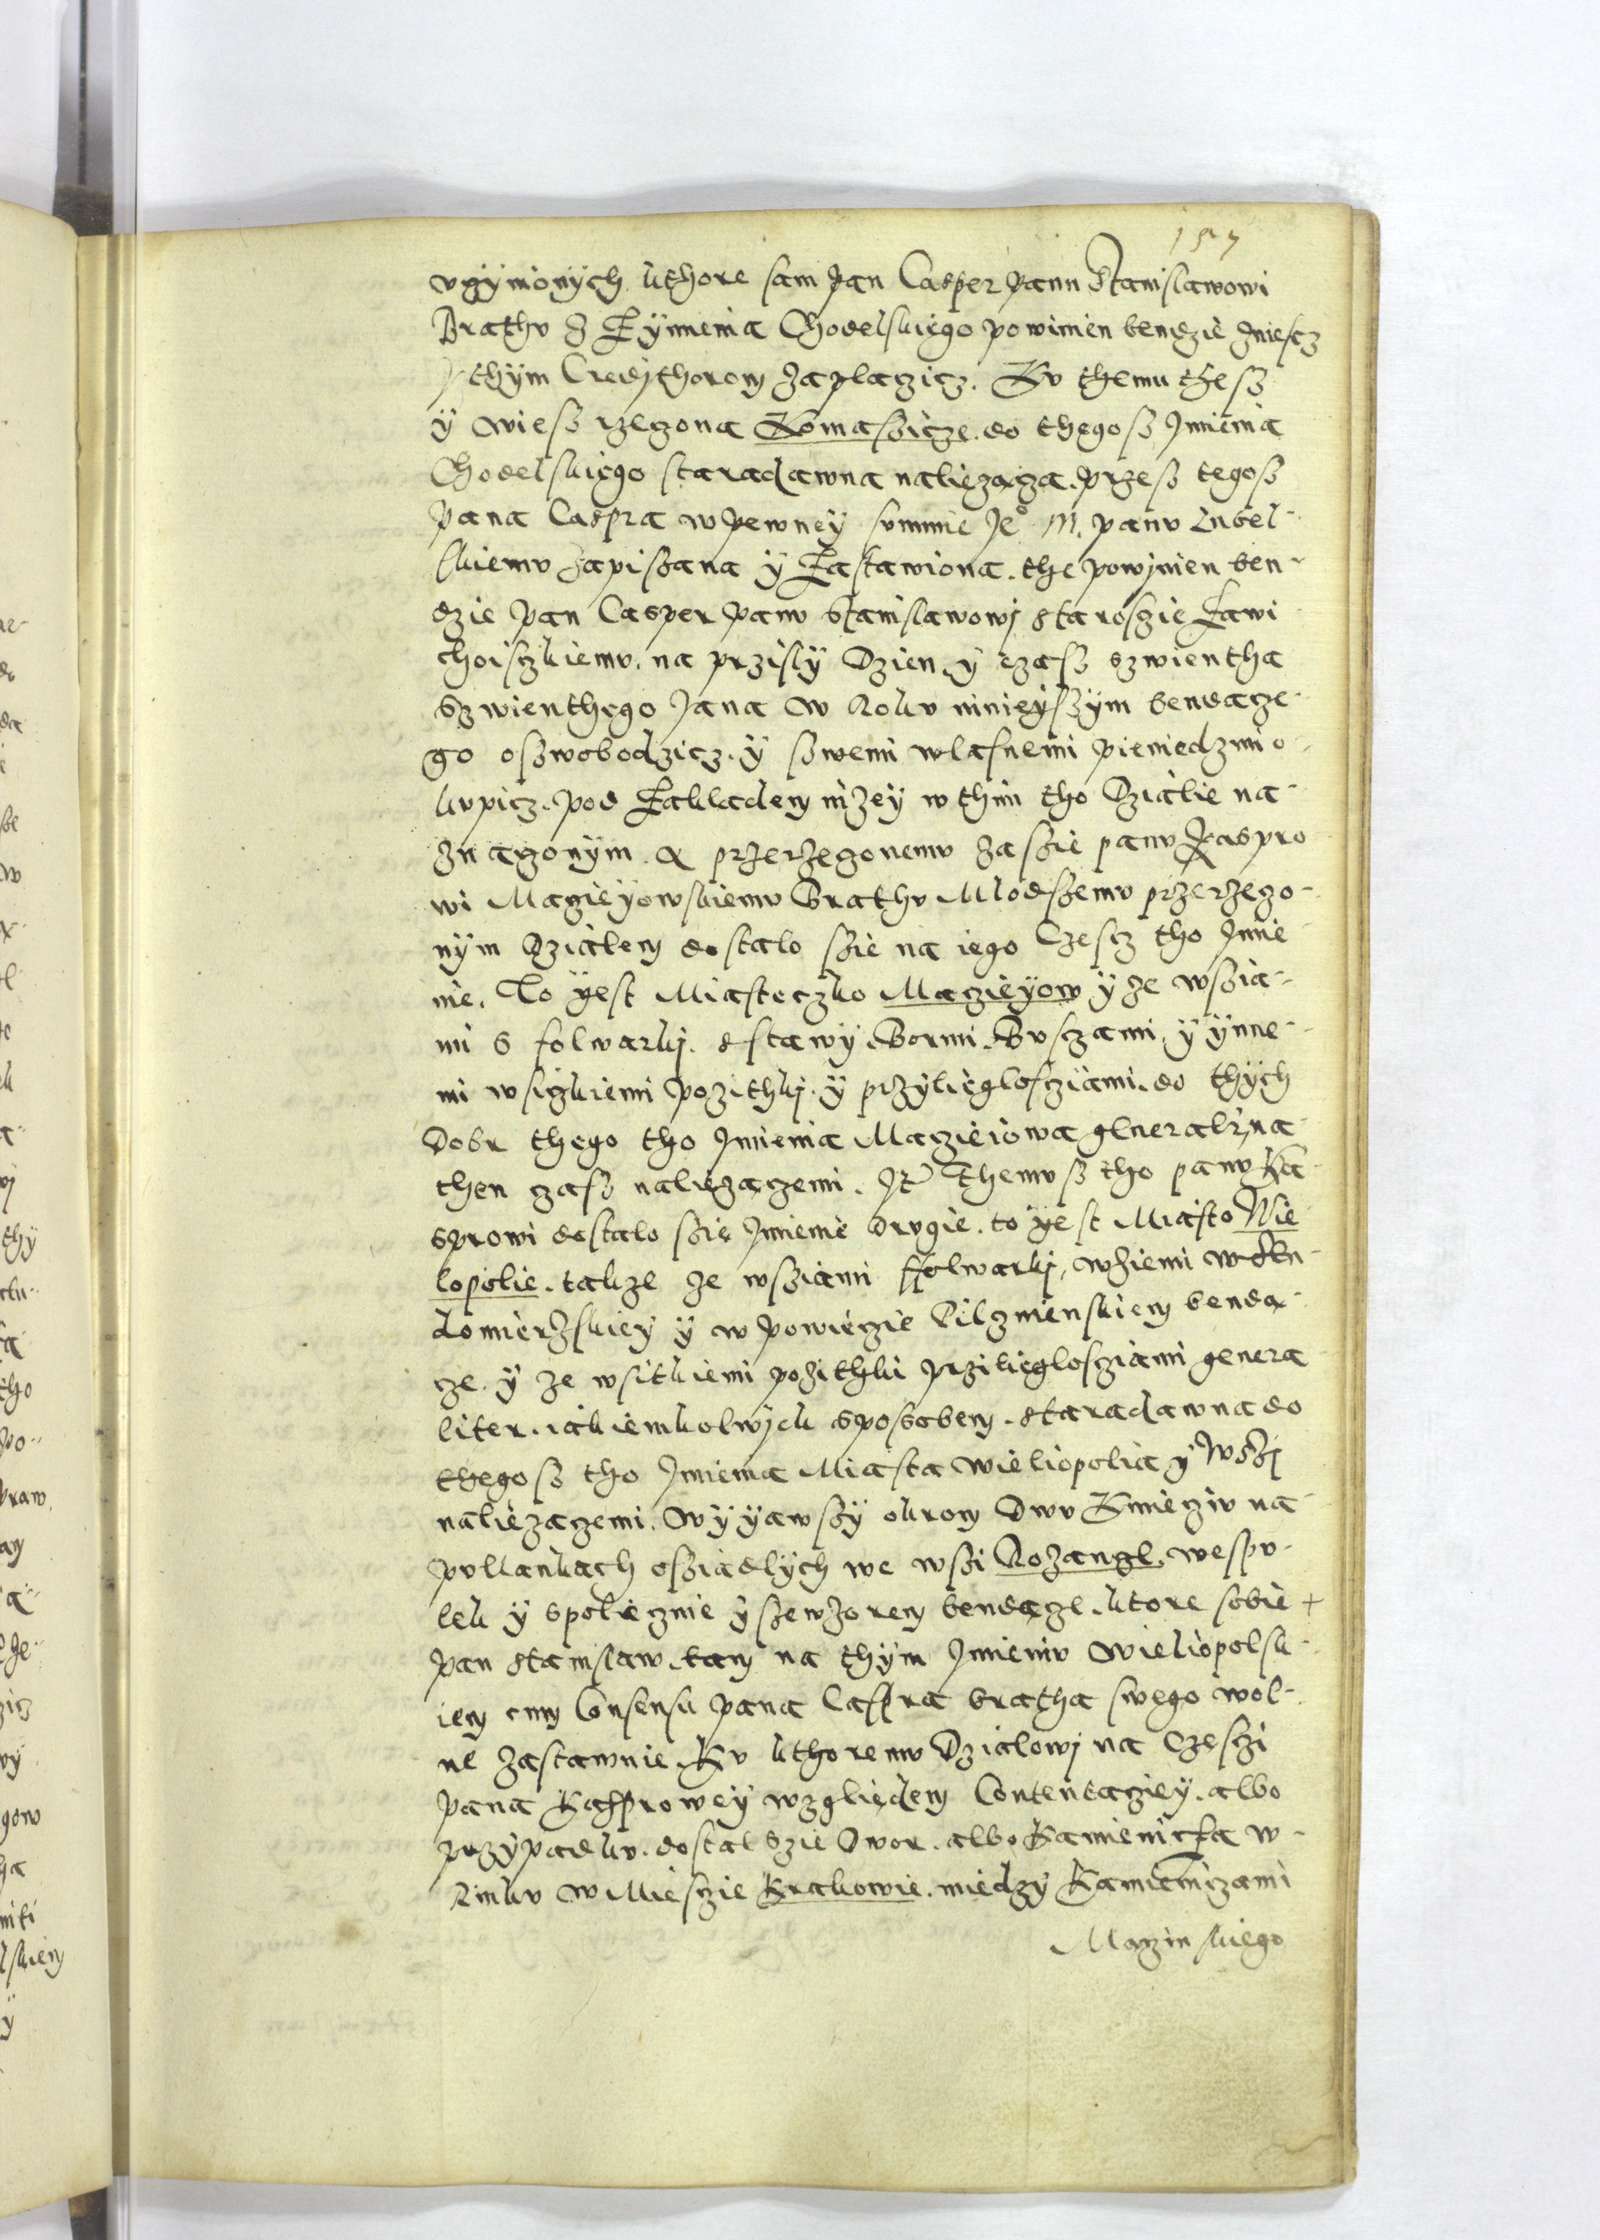 157
vgÿmionÿch kthore sam pan Casper pann Stanislawowi
Brathv z Eÿmienia Chodelskiego powinien bendzie zniescz
thÿm Credÿthorom zaplaczicz. Kv themu thesz
ÿ wiesz rzeczona Komaszicze. do thegosz Jmienia
Chodelskiego staradawna nalieząza. przesz tegosz
pana Caspra w pewneÿ summie Je° M. panv Lubel-
skiemv zapiszana ÿ Zastawiona. the powjnien ben-
dzie pan Casper panv Stanislawowj staroszie Zawi
choisczkiemv. na przislÿ Dzien. ÿ czasz szwientha
Szwienthego Jana w Rokv ninieÿszÿm bendącze-
go oszwobodzicz. ÿ szwemi wlasnemi pieniedzmi o-
kvpicz. pod Zakladem nizeÿ w thim tho Dzialie na-
znaczonÿm. A przerzeczonemv zaszie panv Kaspro
wi Maczieÿowskiemv Brathv Mlodszemv przerzeczo-
nÿm Dzialem dostalo szie na iego Czescz tho Jmie-
nie. To ÿest Miasteczko Maczieÿow ÿ ze wszia-
mi s folwarkj. s stawÿ. Bormi. Bvsczami. ÿ ÿnne-
mi wsiczkiemi pozithkj. ÿ przÿlieglosciami. do thÿch
Dobr thego tho Jmienia Maczieiowa generalr, na
then czasz naliezączemi. It Themvsz tho panv Ka-
sprowi dostalo szie Jmienie drvgie. to ÿest Miasto Wie
lopolie. takze ze wsziami ffolwarkj, w ziemi w Sen-
domierzskieÿ ÿ w powieczie Pilzmenskiem bendą-
cze. ÿ ze wsitkiemi pozithki prziliegloscziami genera
liter. iakiemkolwjek sposobem. staradawna do
thegosz tho Jmienia Miasta wieliopolia ÿ Wszj
naliezączemi. wÿÿawszÿ okrom Dwv Kmiecziv na
pvllankach osziadlÿch we wszi Rozangl. wespo-
lek ÿ spoliecznie ÿ szewzorem bendącze. ktore sobie +
pan Stanislaw tam na thÿm Jmieniv Wieliopolsk-
iem cum Consensu pana Caspra bratha swego wol-
ne zastawnie. Kv kthoremv Dzialowj na Czeszi
pana Kasprowey wzgliedem Contentacziey. albo
przÿpadkv. dostal szie Dwor. albo Kamienicza w-
Rinkv w Miesczie Krakowie. miedzÿ Kamieniczami
Maczinskiego